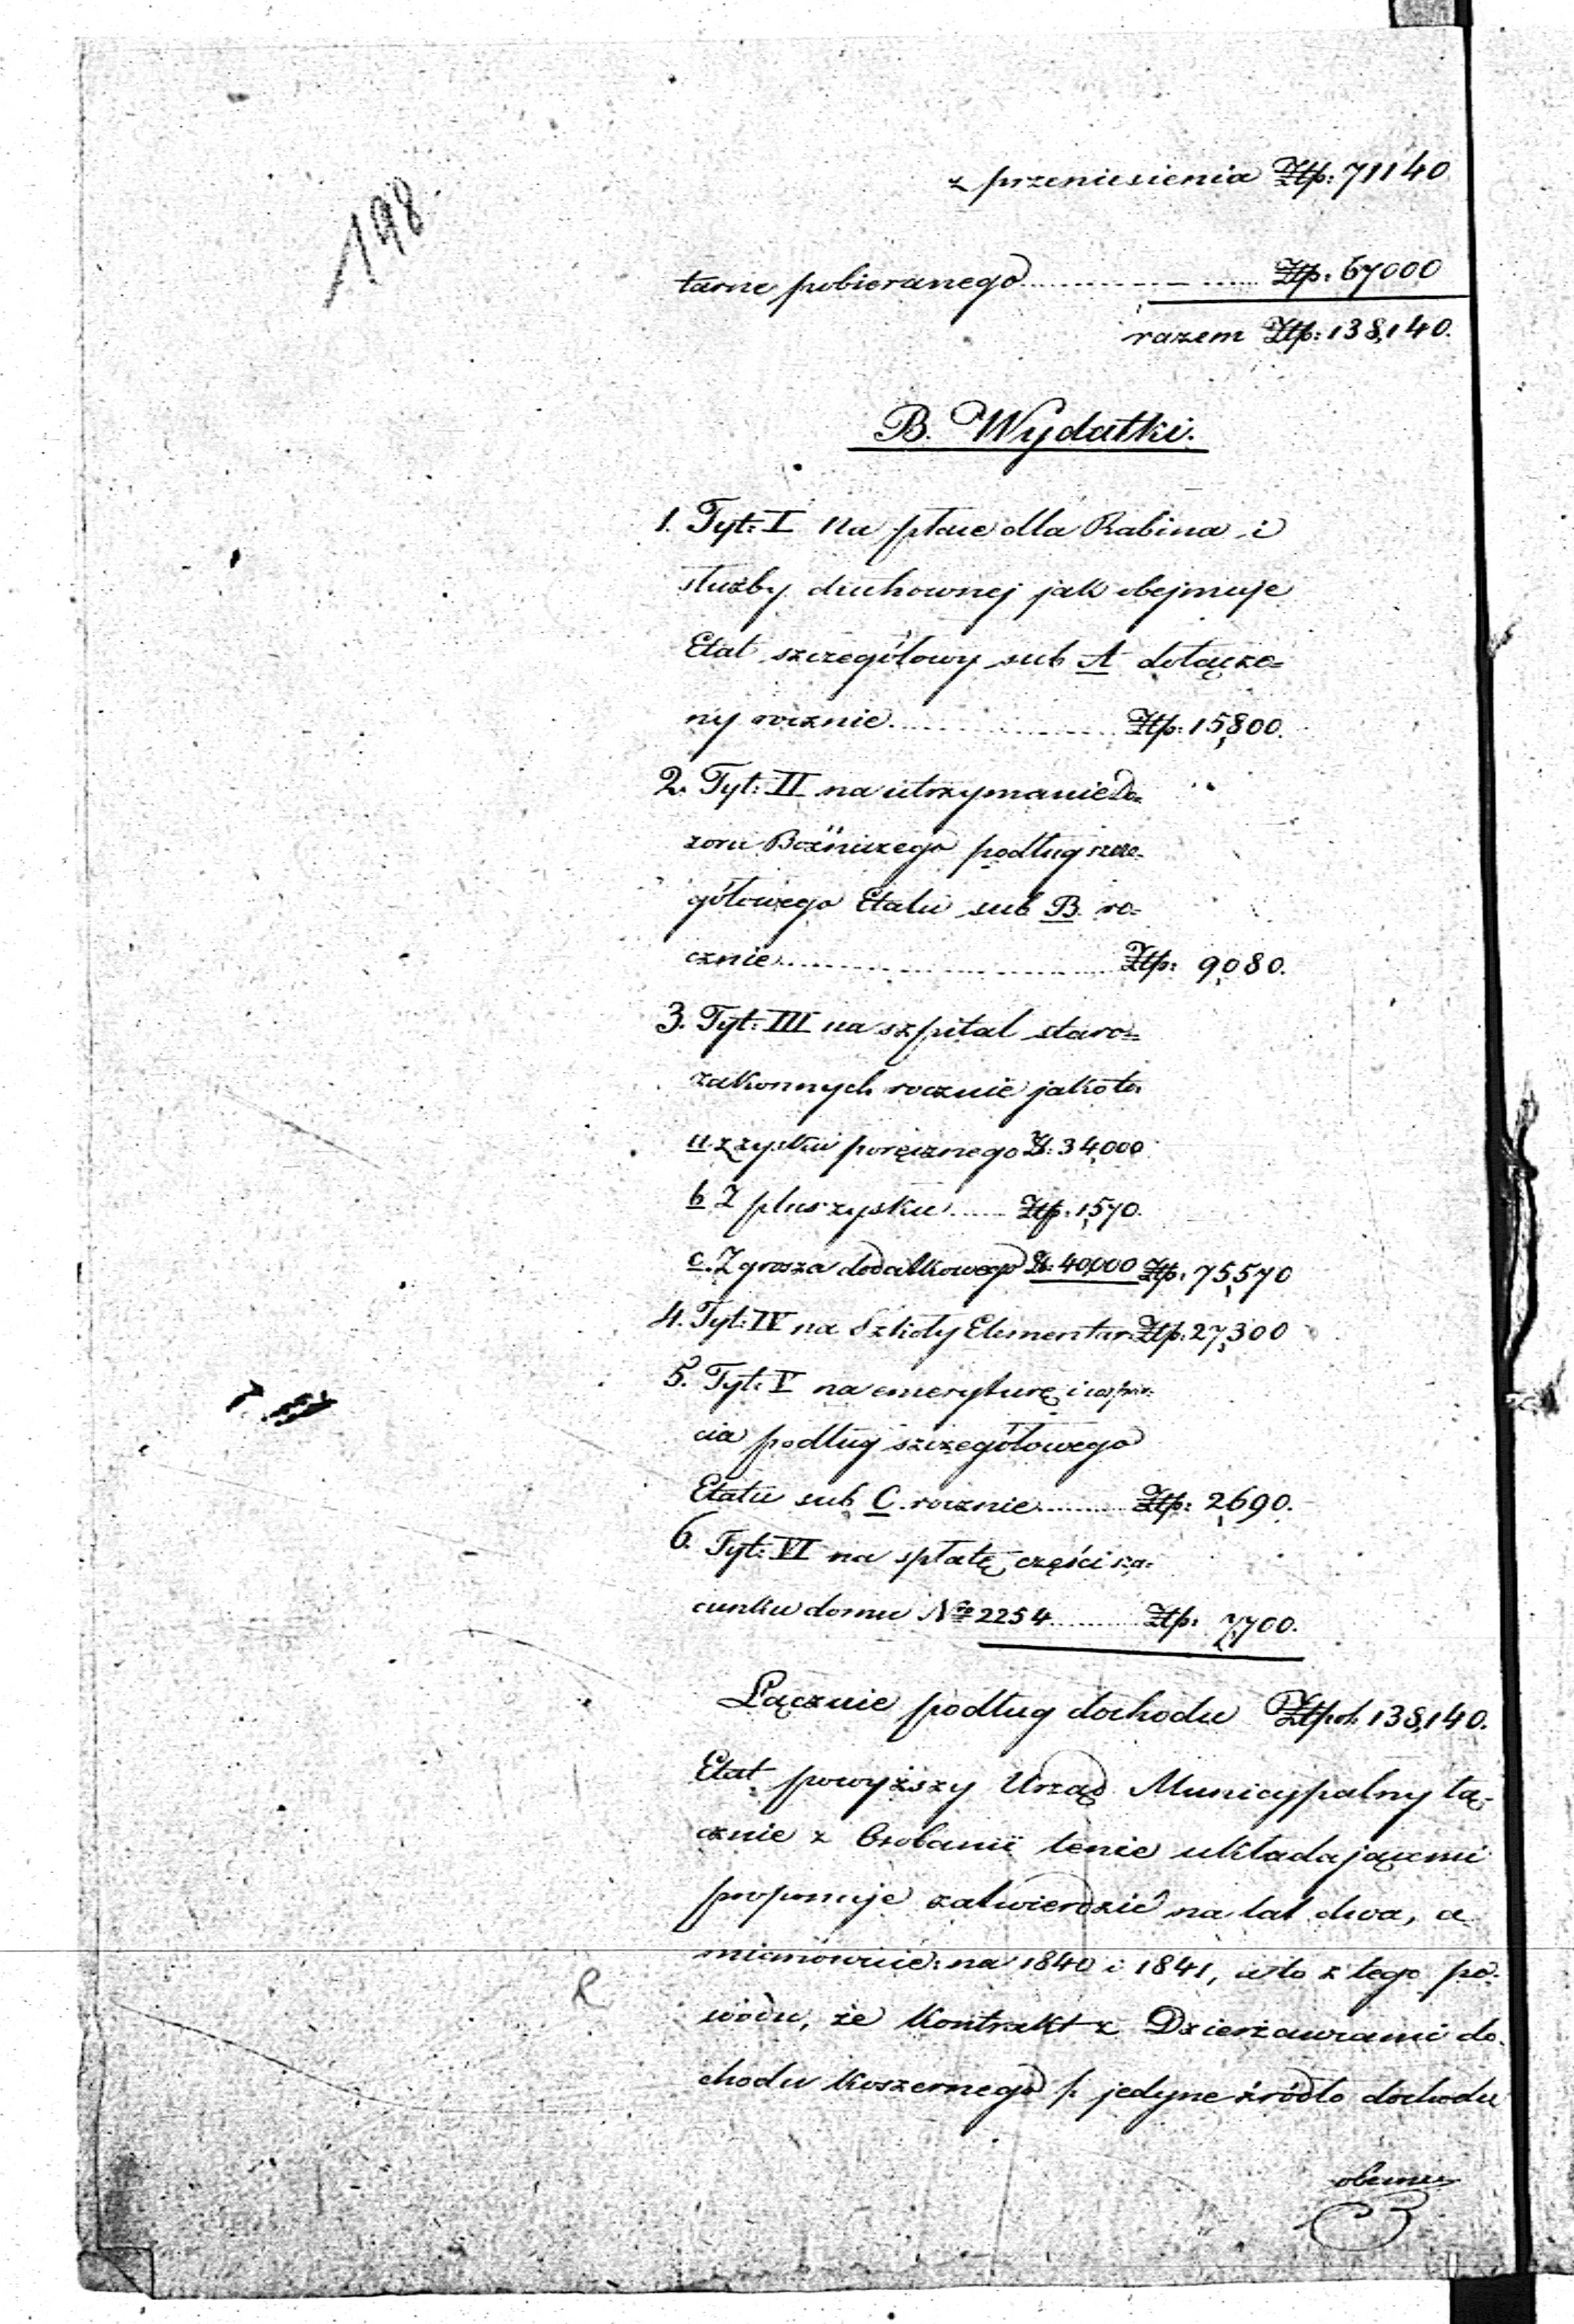 198.
z przeniesienia Złp: 71140
tarne pobieranego Złp: 67000
razem Złp: 138,140.
B. Wydatki.
1. Tyt: I Na płace dla Rabina i
służby duchownej jak obejmuje
Etat szczegółowy sub A dołącze=
ny rocznie Złp: 15,800.
2. Tyt: II na utrzymanie Do=
zoru Bożniczego podług szcze=
gółowego Etatu sub B. ro=
cznie Złp: 9,080.
3. Tyt: III na szpital staro=
zakonnych rocznie jakoto
a z zysku poręcznego Zł: 34,000
b Z plus zysku Złp: 1,570.
c. Z grosza dodatkowego Zł: 40,000 Złp: 75,570
4. Tyt: IV na Szkoły Elementar: Złp: 27,300
5. Tyt: V na emeryturę i wspar=
cia podług szczegółowego
Etatu sub C. rocznie Złp: 2,690.
6. Tyt: VI na spłatę części sza=
cunku domu Nro 2254 Złp: 7,700.
Łącznie podług dochodu Złpol: 138,140.
Etat powyższy Urząd Municypalny łą=
cznie z Osobami tenże układającemi
proponuje zatwierdzić na lat dwa, a
mianowicie: na 1840 i 1841, a to z tego po=
wodu, że Kontrakt z Dzierżawcami do=
chodu koszernego /: jedyne źródło dochodu
R